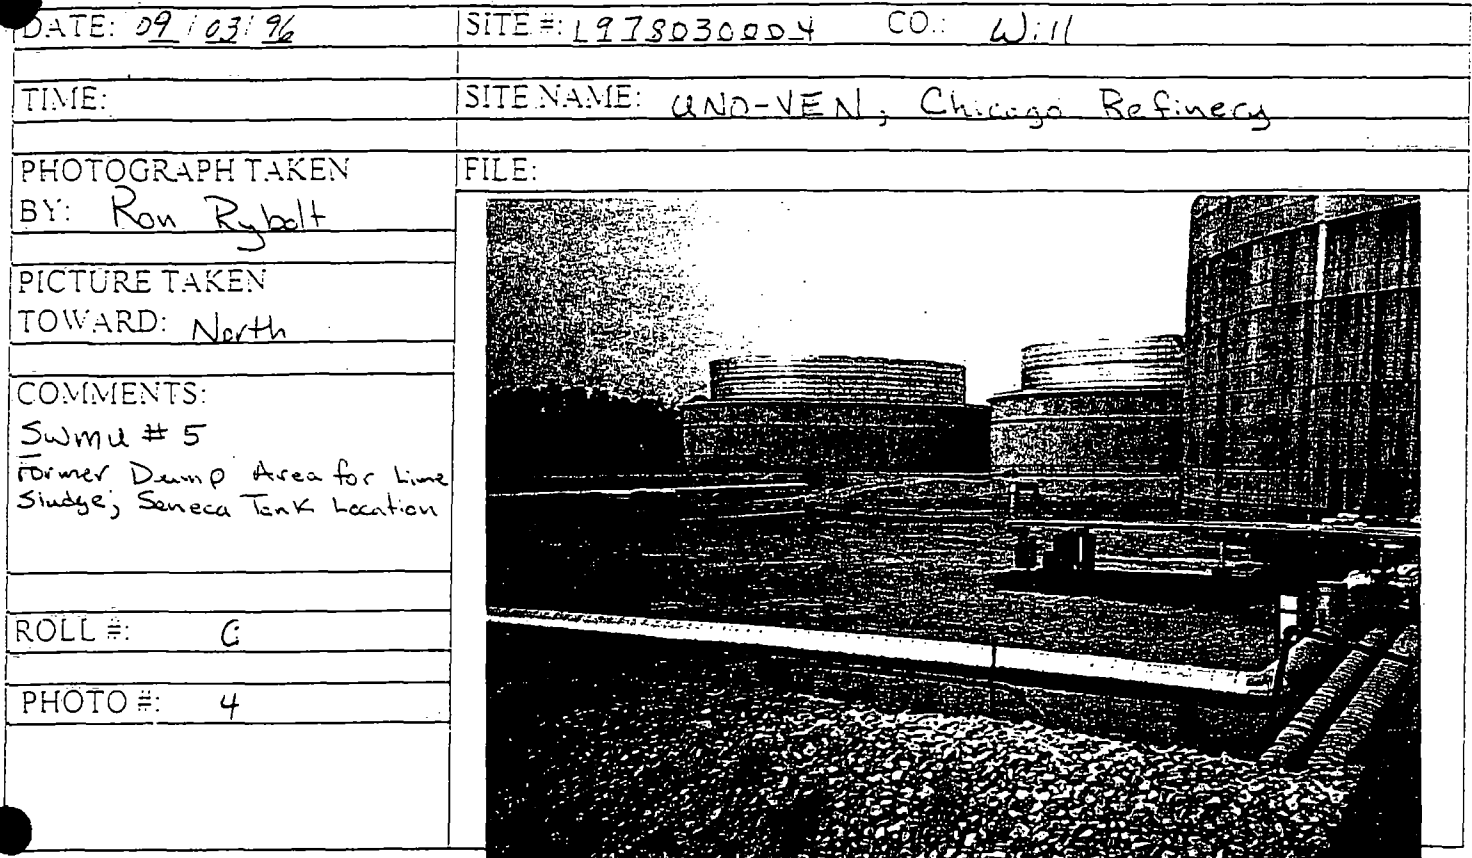 DATE: 09/03/96 SITE #: L978030004 CO.: Will
TIME: SITE NAME: UNO-VEN, Chicago Refinery
PHOTOGRAPH TAKEN
BY: Ron Rybolt
FILE:
PICTURE TAKEN
TOWARD: North
COMMENTS:
SWMU # 5
Former Dump Area for Lime
Sludge, Seneca Tank Location
ROLL #: C
PHOTO #: 4